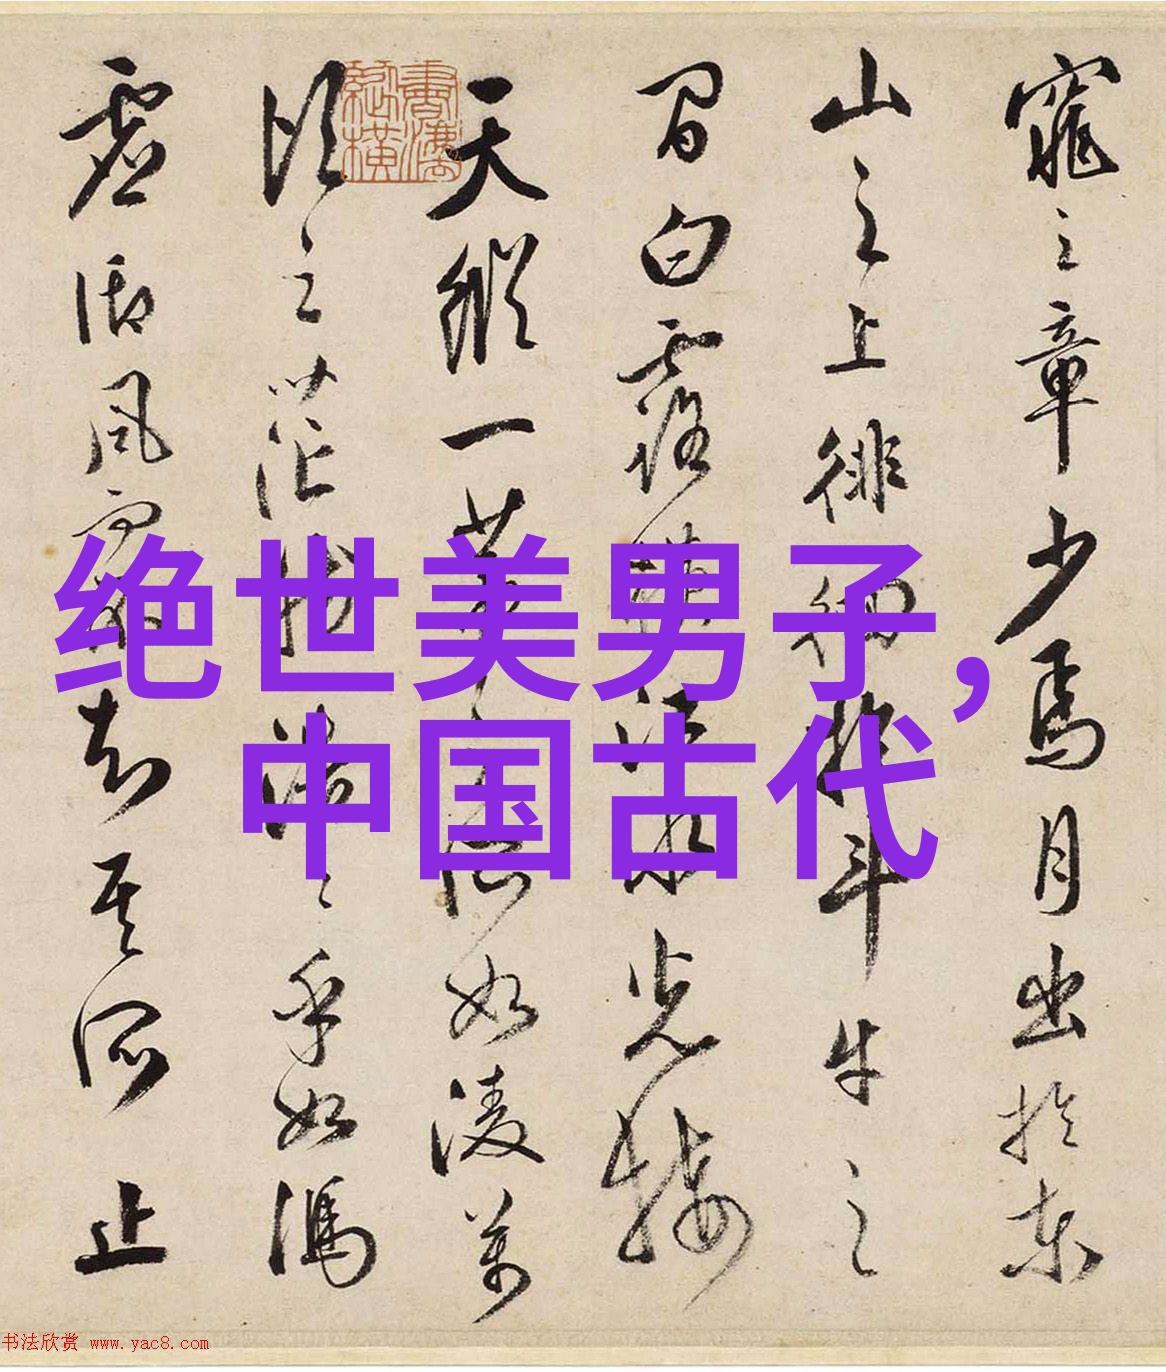 窕之章少焉月出於東
山之上徘徊於斗牛之
間白露橫江水光接
天縱一葦之所如凌萬
頃之茫然浩〻乎如馮
虛御風而不知其所止
绝世美男子，
中国古代
书法欣赏 www.yac8.com